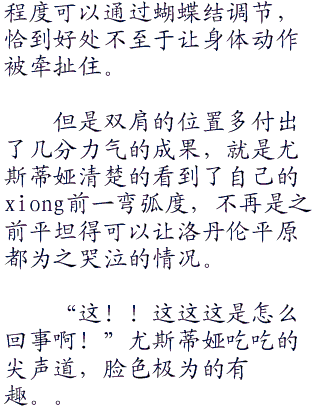 程度可以通过蝴蝶结调节，
恰到好处不至于让身体动作
被牵扯住。
但是双肩的位置多付出
了几分力气的成果，就是尤
斯蒂娅清楚的看到了自己的
xiong前一弯弧度，不再是之
前平坦得可以让洛丹伦平原
都为之哭泣的情况。
“这！！这这这是怎么
回事啊！”尤斯蒂娅吃吃的
尖声道，脸色极为的有
趣。。